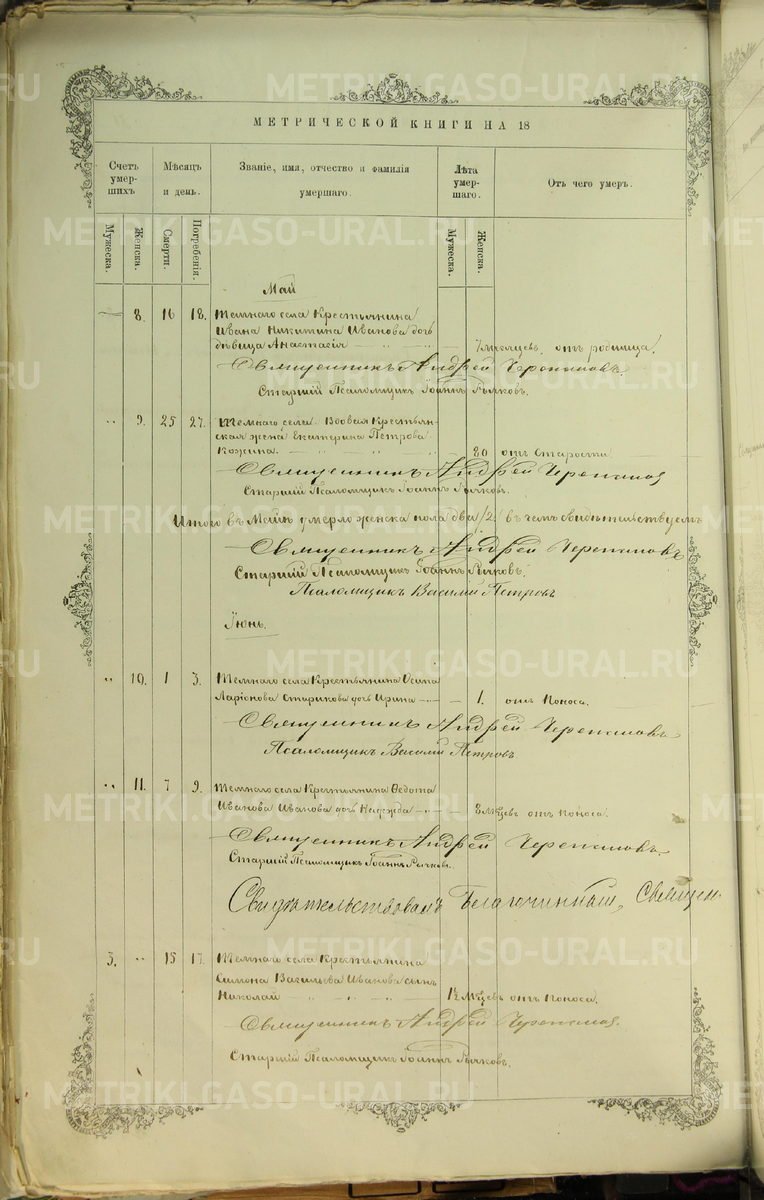 METRIKI.GASO-URAL.RU
МЕТРИЧЕСКОЙ КНИГИ НА 18
Счетъ умер-шихъ
Мѣсяцъ и день.
Званіе, имя, отчество и фамилія умершаго.
Лѣта умер-шаго.
Отъ чего умеръ.
Мужеска. Женска. Смерти. Погребенія. Мужеска. Женска.
Май
8. 16 18. Темнаго села Крестьянина
Ивана Никитина Иванова дочь
дѣвица Анастасія 7 мѣсяцевъ. отъ родимца.
Священникъ Андрей Черепановъ.
Старшій Псаломщикъ Іоаннъ Рычковъ.
9. 25 27. Темнаго села Вдовая Крестьян-
ская жена Екатерина Петрова
Кожина. 80 отъ Старости
Священникъ Андрей Черепановъ
Старшій Псаломщикъ Іоаннъ Рычковъ.
Итого въ Маѣ умерло женска пола двѣ /2/ въ чемъ свидѣтельствуемъ
Священникъ Андрей Черепановъ
Старшій Псаломщикъ Іоаннъ Рычковъ.
Псаломщикъ Василій Петровъ
Іюнь.
10. 1 3. Темнаго села Крестьянина Осипа
Ларіонова Старикова дочь Ирина 1. отъ Поноса.
Священникъ Андрей Черепановъ
Псаломщикъ Василій Петровъ
11. 7 9. Темнаго села Крестьянина Федота
Иванова Иванова дочь Надежда 8 мѣцевъ отъ Поноса.
Священникъ Андрей Черепановъ.
Старшій Псаломщикъ Іоаннъ Рычковъ.
Свидѣтельствовалъ Благочинный, Священ
5. 15 17. Темнаго села Крестьянина
Симона Васильева Иванова сынъ
Николай 1½ Мѣцевъ отъ Поноса.
Священникъ Андрей Черепановъ.
Старшій Псаломщикъ Іоаннъ Рычковъ.